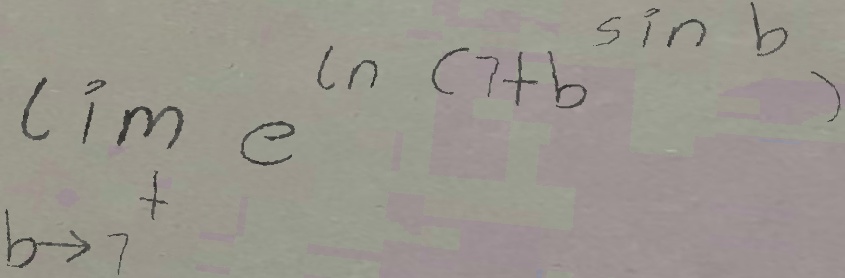 \lim_{b \to 7^+} e^{\ln (7+b^{\sin b})}